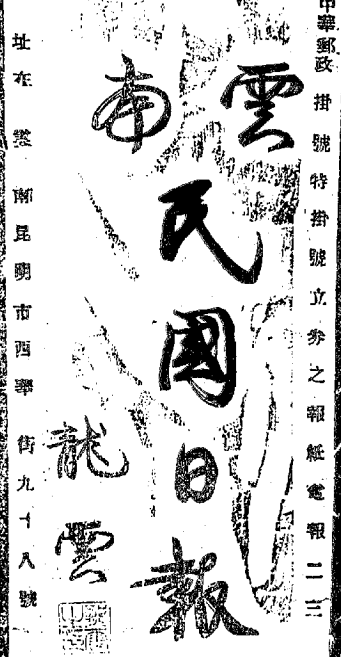 中華郵政掛號特掛號立券之報紙電報二三
雲南
民國日報
龍雲
址在雲南昆明市西華街九十八號